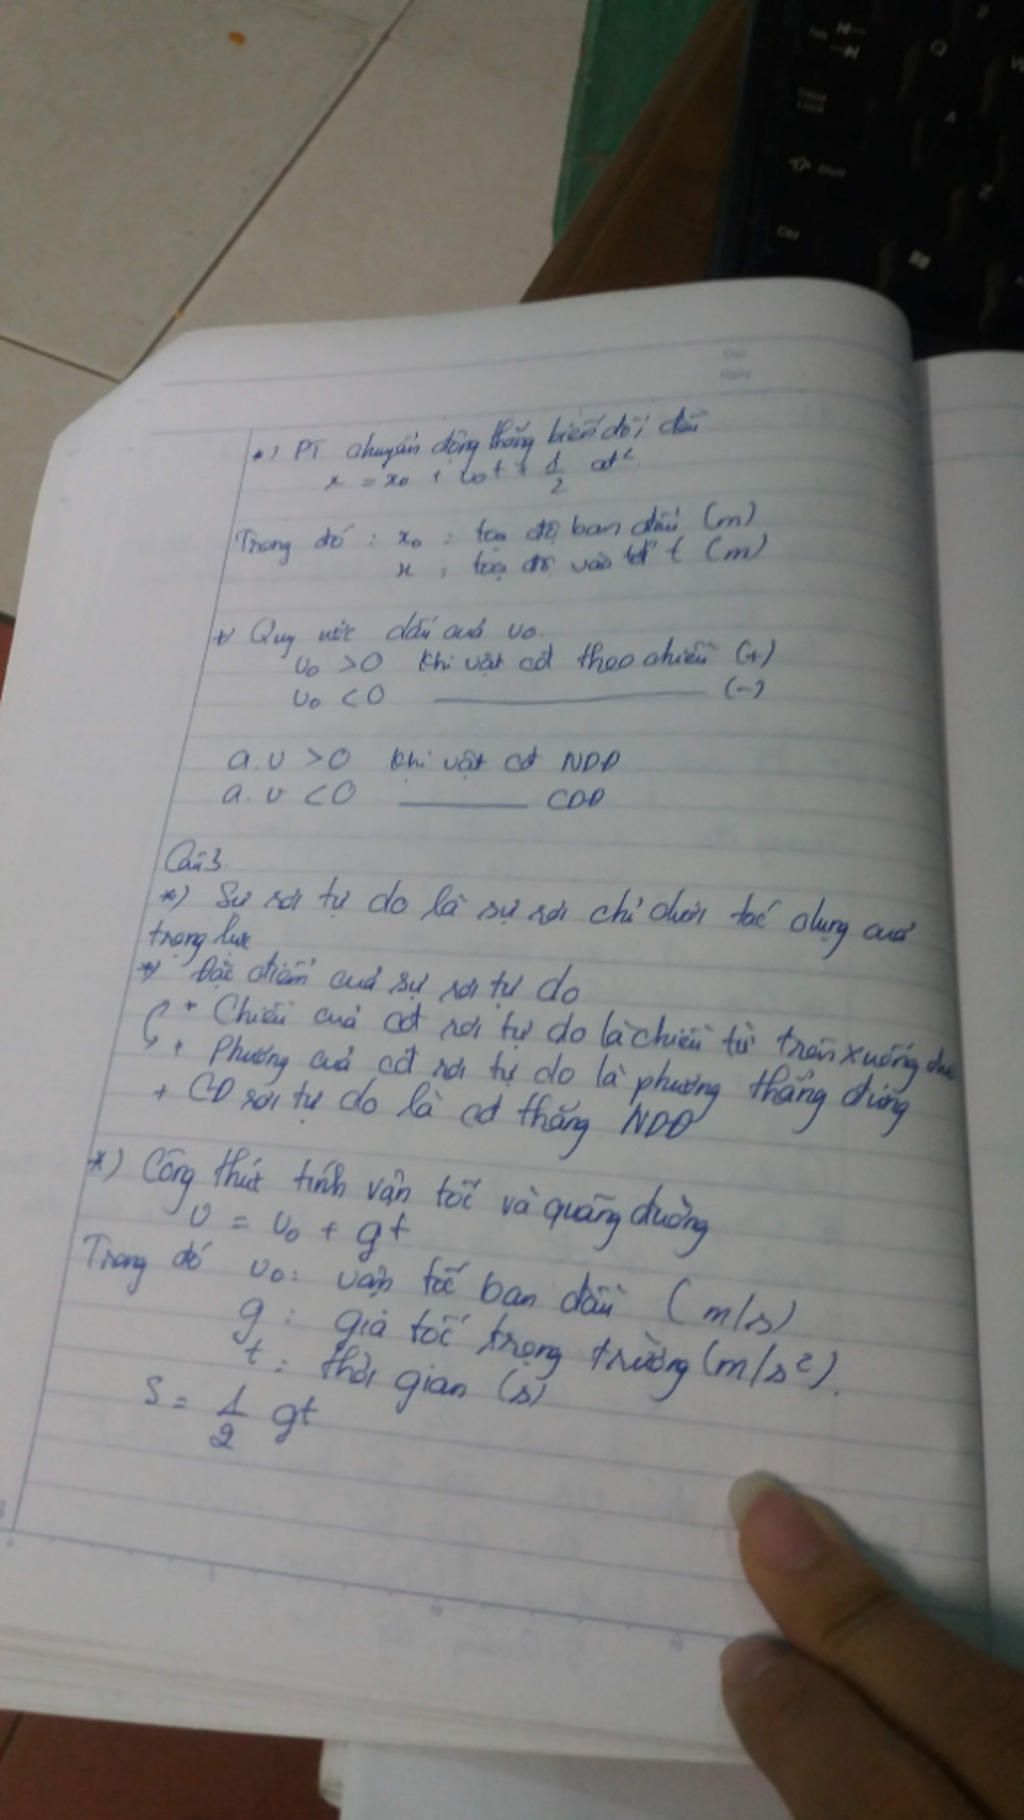 Thứ
Ngày
*) PT chuyển động thẳng biến đổi đều
x = x₀ + v₀t + 1/2 at²
Trong đó : x₀ : toạ độ ban đầu (m)
x : toạ độ vào tđ t (m)
+) Quy ước dấu của v₀.
v₀ > 0 khi vật cđ theo chiều (+)
v₀ < 0 ———————— (-)
a.v > 0 khi vật cđ NDĐ
a.v < 0 ———— CDĐ
Câu 3
*) Sự rơi tự do là sự rơi chỉ dưới tác dụng của
trọng lực
*) Đặc điểm của sự rơi tự do
+ Chiều của cđ rơi tự do là chiều từ trên xuống dưới
+ Phương của cđ rơi tự do là phương thẳng đứng
+ CĐ rơi tự do là cđ thẳng NDĐ
*) Công thức tính vận tốc và quãng đường
v = v₀ + gt
Trong đó v₀ : vận tốc ban đầu (m/s)
g : gia tốc trọng trường (m/s²).
t : thời gian (s)
S = 1/2 gt
Caps Lock
Shift
Ctrl
Q
A
Z